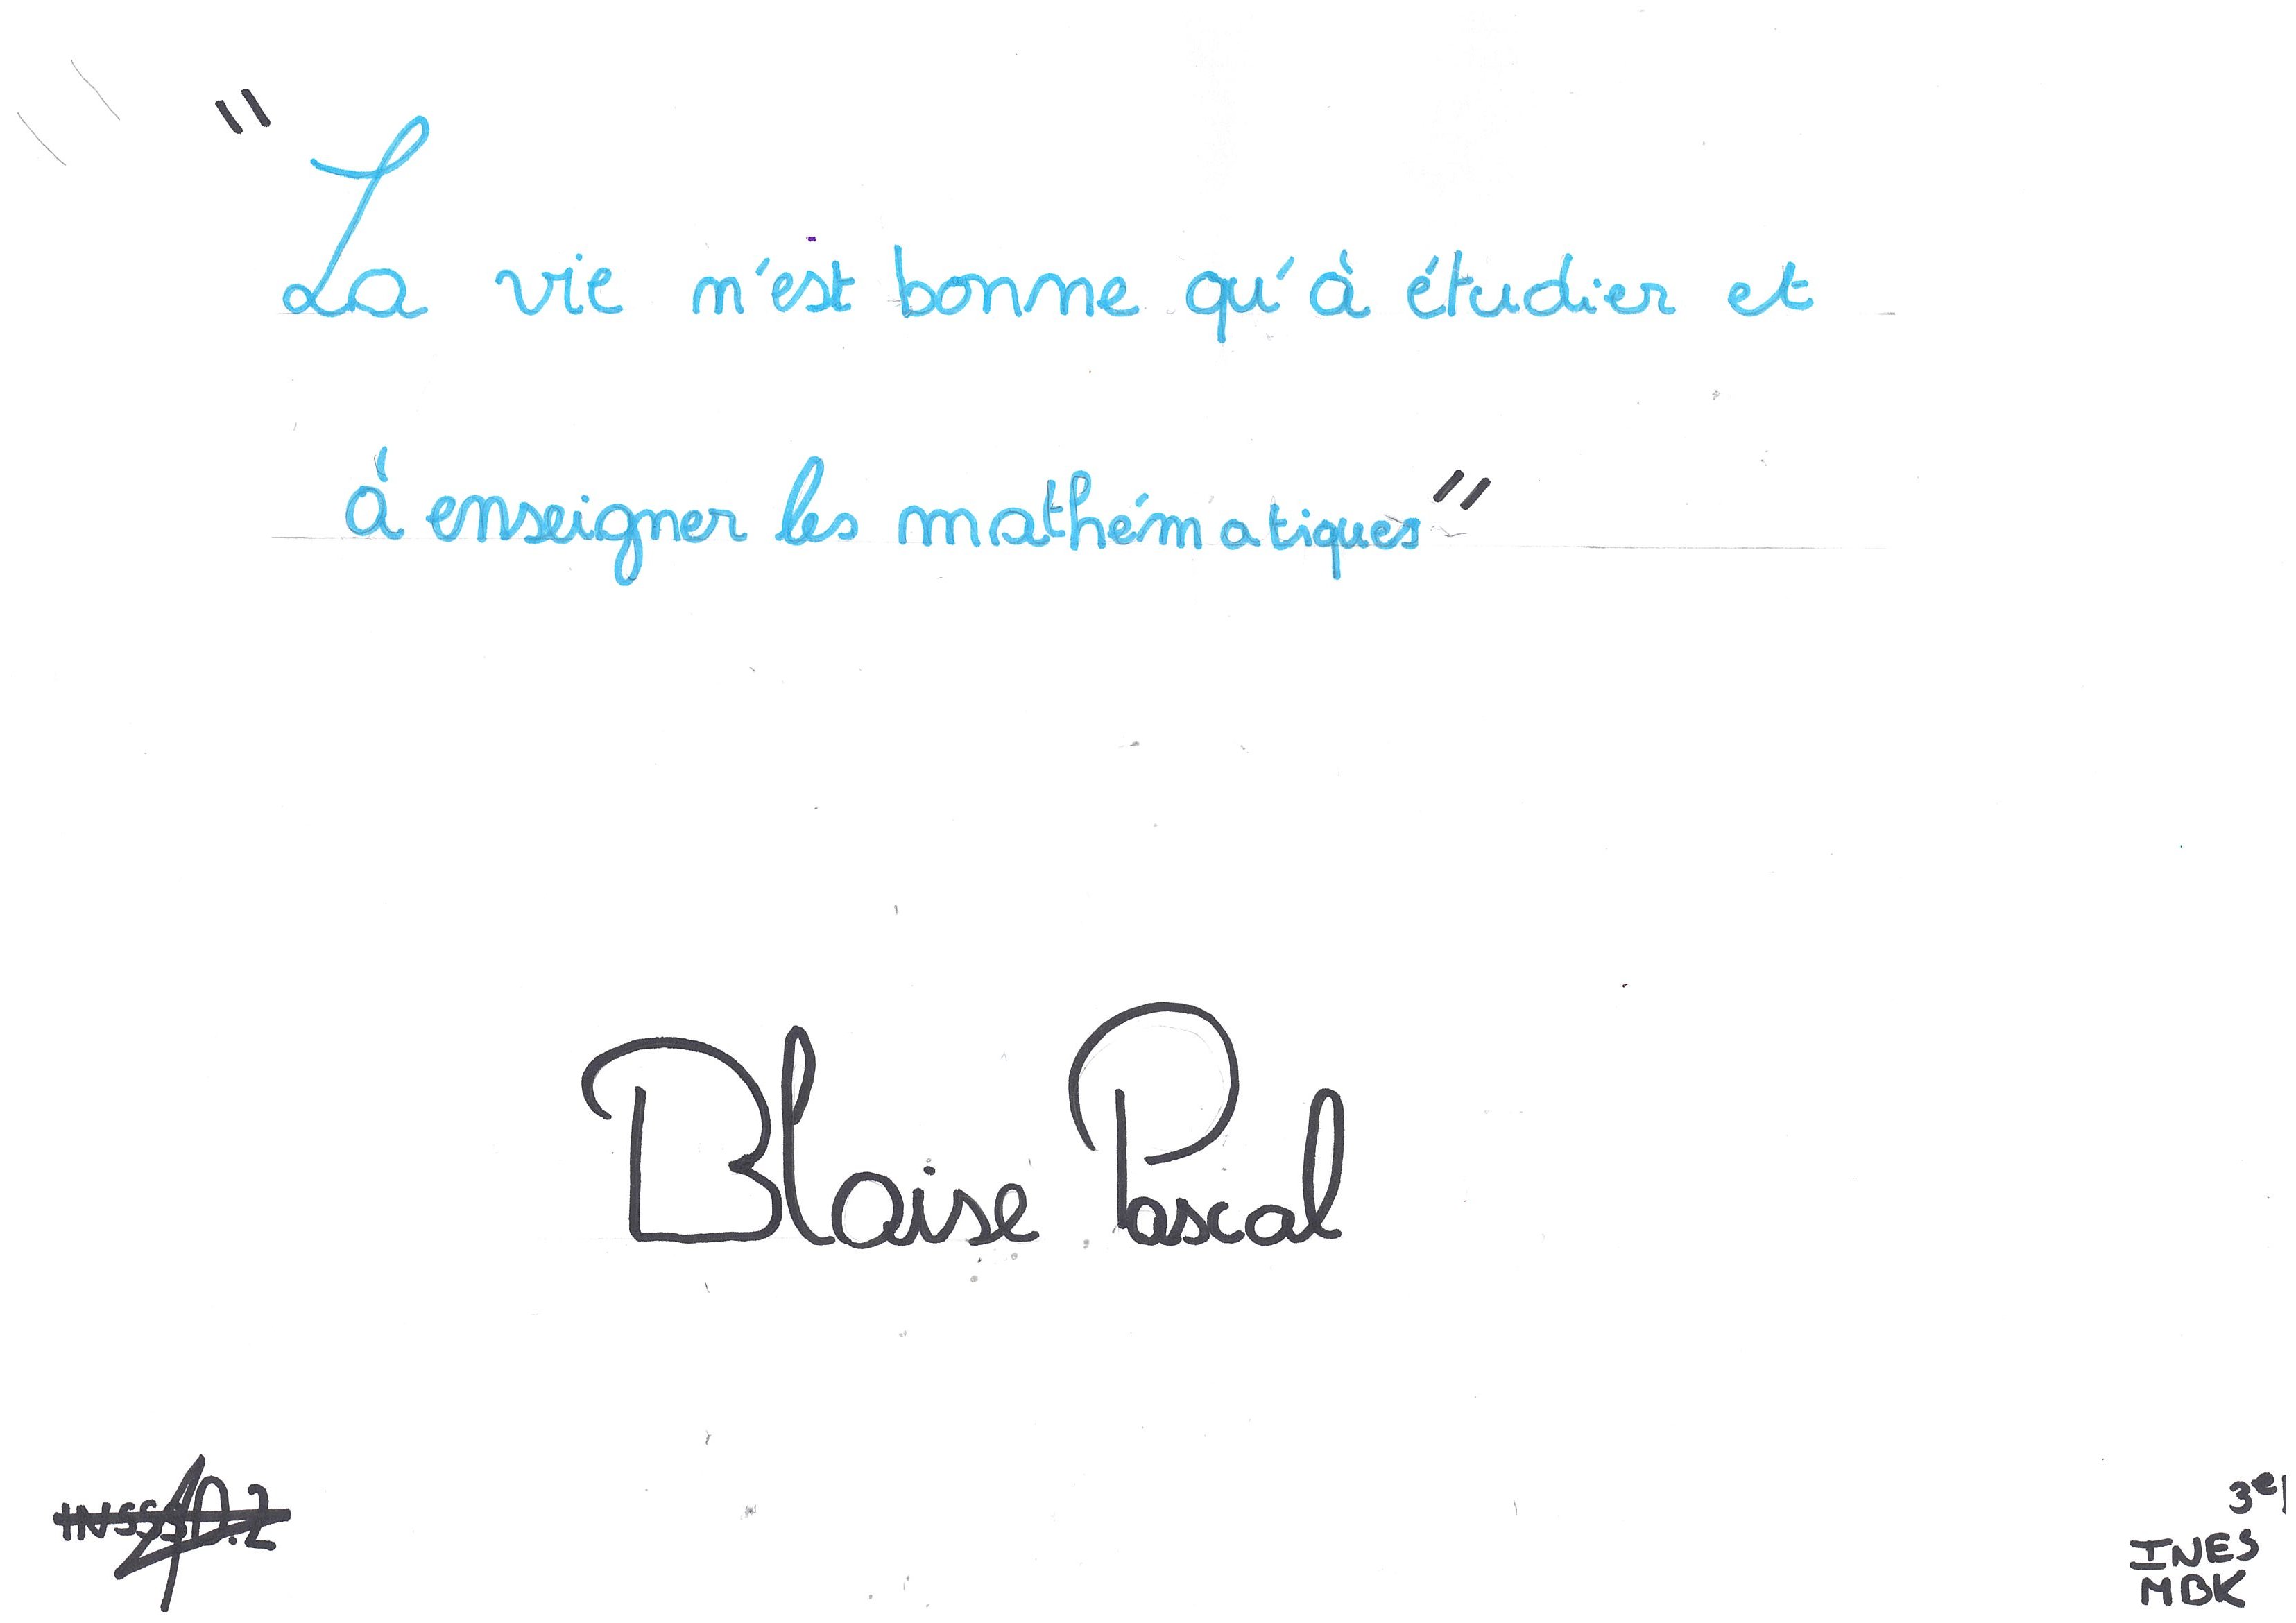 "La vie n'est bonne qu'à étudier et
à enseigner les mathématiques"
Blaise Pascal
3e1
INES
MBK